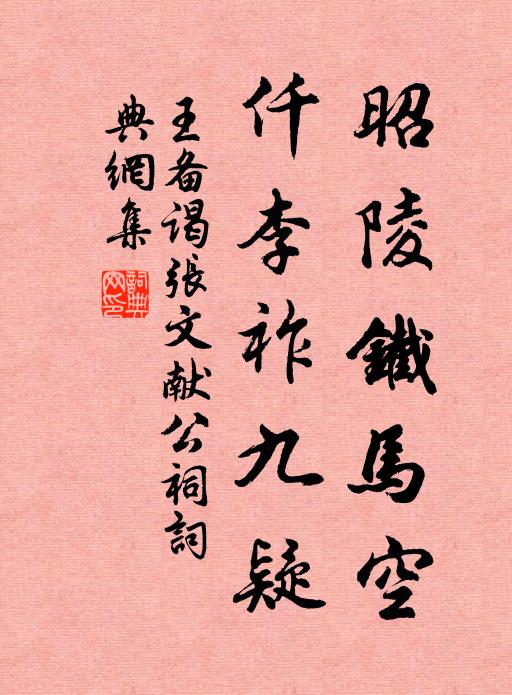 昭陵鐵馬空
仟李祚九疑
王备谒張文献公祠詞
典網集
詞典網印